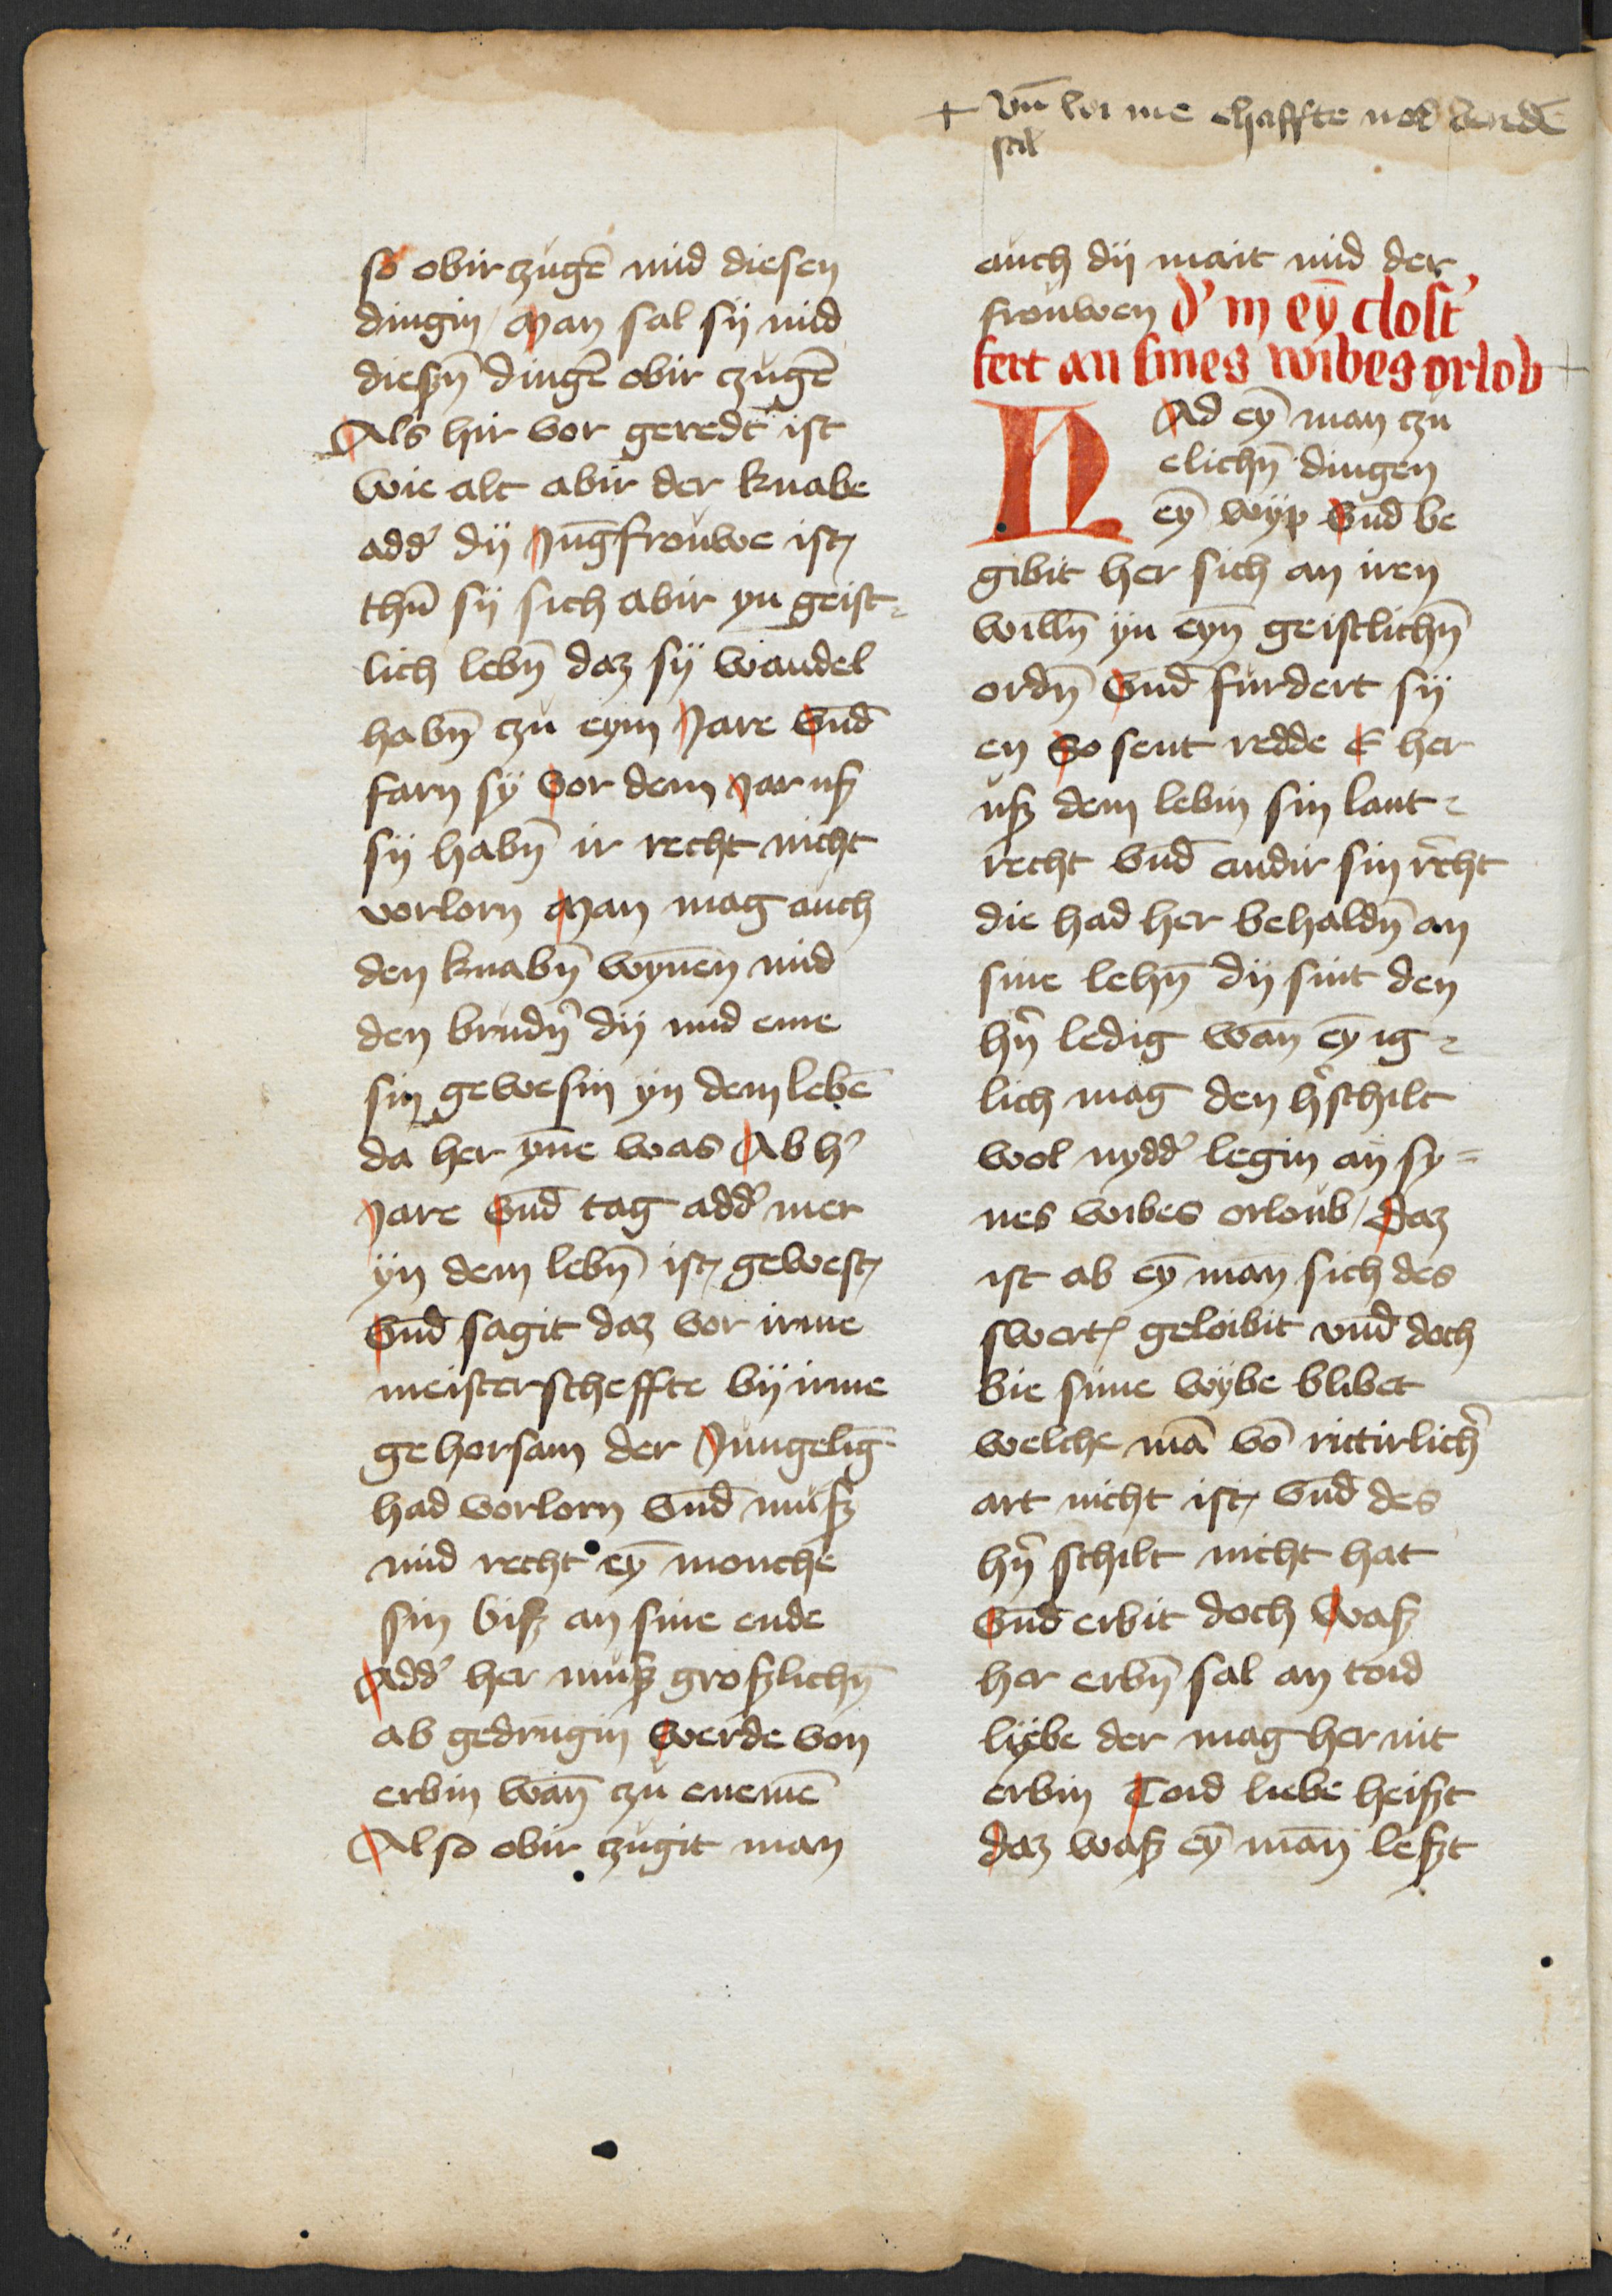 + vn̄ wi me ehaffte not
so obirczugē mid diesen
dingin / Man sal sij mid
dieszn̄ dingē obir czugē
Als hir vor geredt ist
wie alt abir der knabe
add' dij Jūgfrouwe ist
thū sij sich abir yn geist-
lich lebn̄ daz sij wandel
habn̄ czu eym Jare vnd̄
farn sy vor dem Jar usz
sij habn̄ ir recht nicht
vorlorn Man mag auch
den knabn̄ wynnen mid
den brudn̄' dij mid eme
sin gewesin yn dem lebē
da her ynne was Ab h'
Jare vnd̄ tag add' mer
yn dem lebn̄ ist gewest
vnd̄ sagit daz vor irme
meisterscheffte bij irme
gehorsam der Jungelīg
had vorlorn vnd̄ musz
mid recht eȳ monche
sin bisz an sine ende
Add' her musz groszlichn̄
ab gedrūgin werde von
erbin wan̄ czu enemē
Also obir czugit man
auch dij mait mid der
frouwen d' in eȳ clost'
fert an sines wibes orlob +
N Ad eȳ man czu
elichn̄ dingen
eȳ wyp vnd̄ be
gibit her sich an iren
willn̄ yn eyn̄ geistlichn̄
ordn̄ vnd̄ furdert sij
en So sent redde E her
usz dem lebin sin lant-
recht vnd̄ andir sin recht
die had her behaldn̄ an
sine lehn̄ dij sint den
hn̄' ledig wan eȳ ig-
lich mag den h'schilt
wol nydd' legin an sy=
nes wibes orloub / Daz
ist ab eȳ man sich des
swert geloibit vnd̄ doch
bie sime wybe blibet
welche mā vō rittirlich'
art nicht ist vnd̄ des
hn̄' schilt nicht hat
vnd̄ erbit doch Wasz
her erbn̄ sal an toid
lybe der mag her nit
erbin Toid liebe heiszt
daz wasz eȳ man leszt